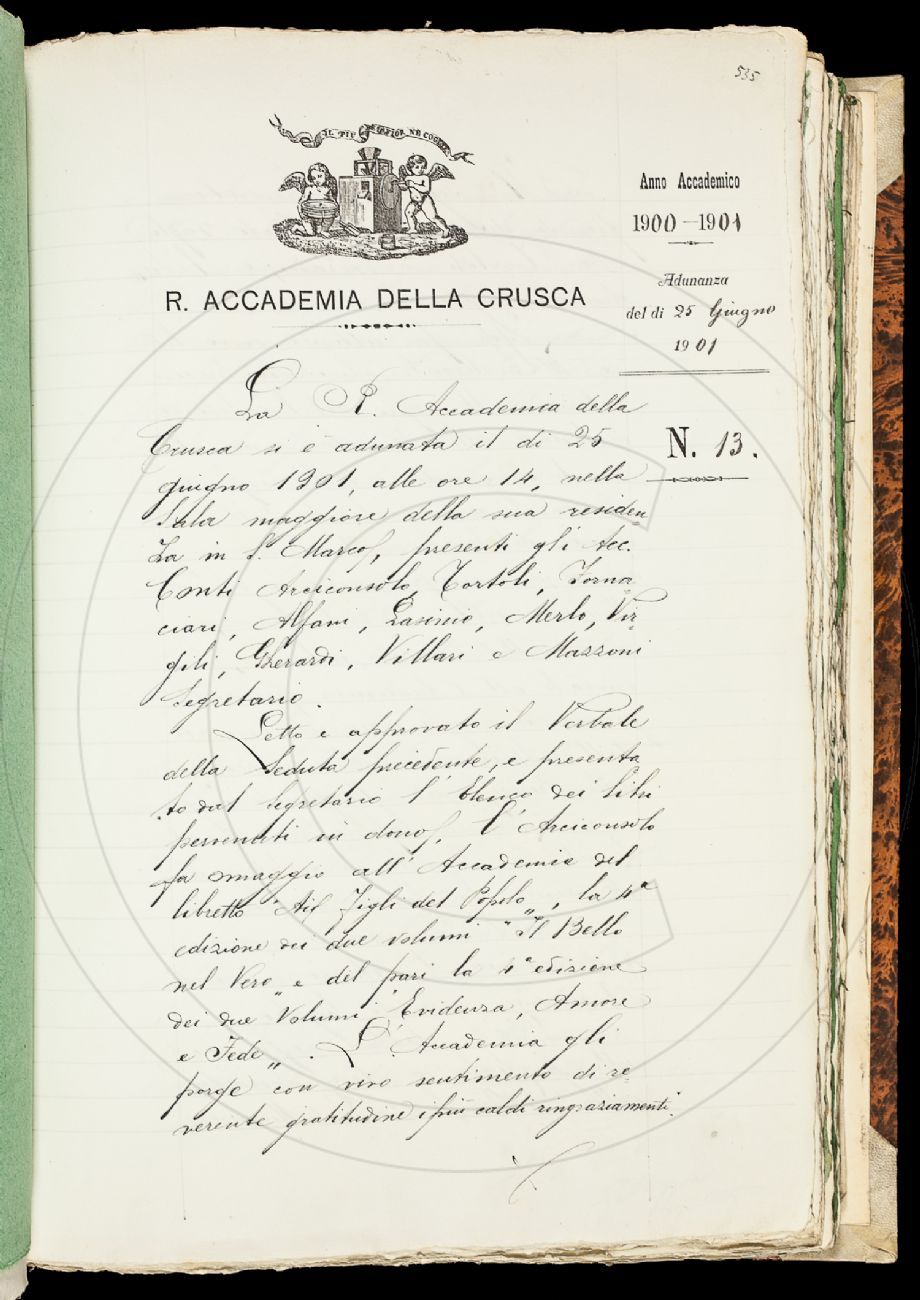 535
IL PIÙ BEL FIOR NE COGLIE
Anno Accademico
1900-1901
Adunanza
del dì 25 Giugno
1901
R. ACCADEMIA DELLA CRUSCA
N. 13.
La R. Accademia della
Crusca si è adunata il dì 25
giugno 1901, alle ore 14, nella
Sala maggiore della sua residen
za in S. Marco, presenti gli Acc.
Conti Arciconsolo, Tortoli, Forna
ciari, Alfani, Lasinio, Merlo, Vir-
gili, Gherardi, Villari e Mazzoni
Segretario.
Letto e approvato il Verbale
della Seduta precedente, e presenta
to dal Segretario l'Elenco dei libri
pervenuti in dono, l'Arciconsolo
fa omaggio all'Accademia del
libretto "Ai Figli del Popolo", la 4ª
edizione dei due volumi "Il Bello
nel Vero" e del pari la 4ª edizione
dei due Volumi "Evidenza, Amore
e Fede". L'Accademia gli
porge con vivo sentimento di re-
verente gratitudine i più caldi ringraziamenti.